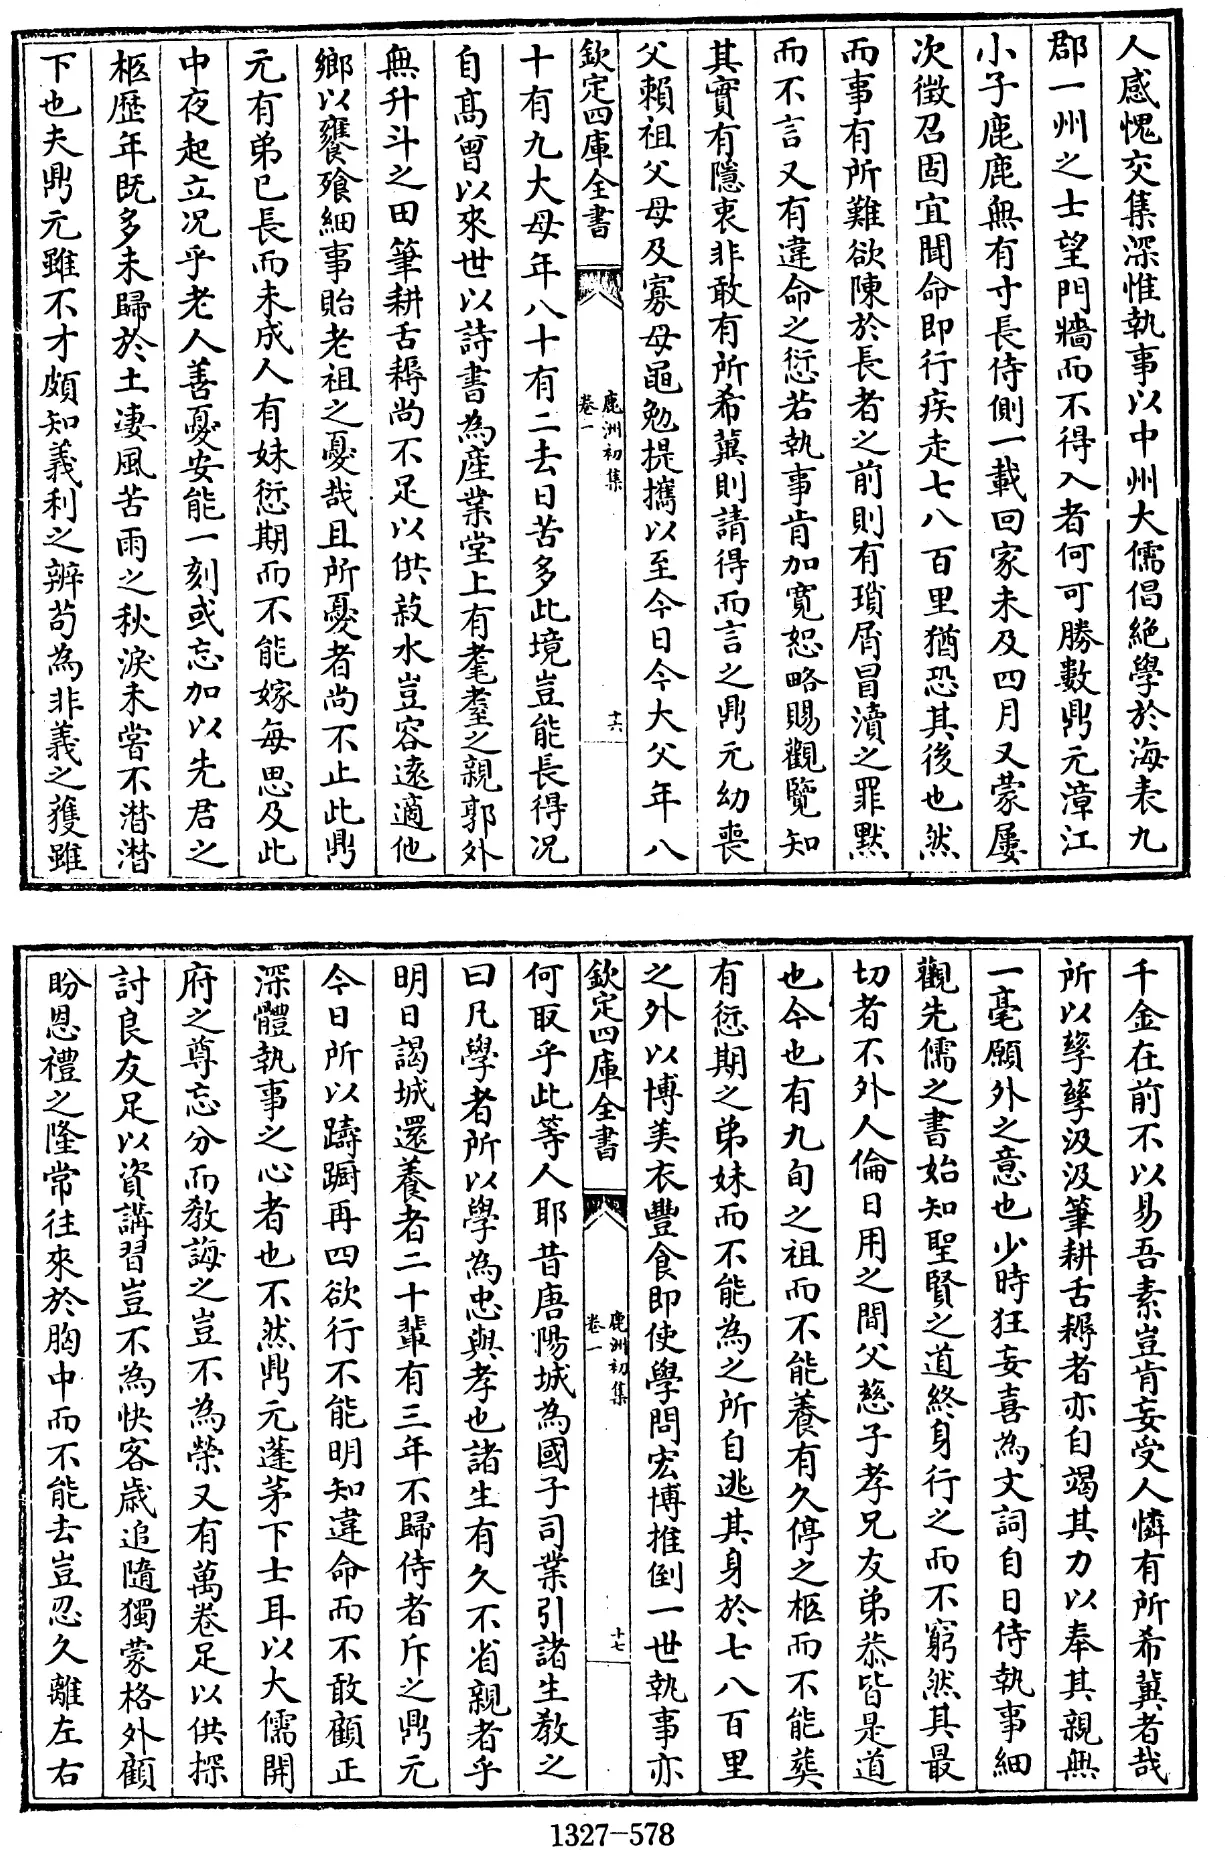 人感愧交集深惟執事以中州大儒倡絶學於海表九
郡一州之士望門牆而不得入者何可勝數鼎元漳江
小子鹿鹿無有寸長侍側一載回家未及四月又蒙屢
次徴召固宜聞命即行疾走七八百里猶恐其後也然
而事有所難欲陳於長者之前則有瑣屑冒瀆之罪黙
而不言又有違命之愆若執事肯加寛恕略賜觀覽知
其實有隱衷非敢有所希冀則請得而言之鼎元幼喪
父賴祖父母及寡母黽勉提攜以至今日今大父年八
欽定四庫全書
鹿洲初集
卷一
十六
十有九大母年八十有二去日苦多此境豈能長得况
自髙曾以來世以詩書為產業堂上有耄耋之親郭外
無升斗之田筆耕舌耨尚不足以供菽水豈容遠適他
鄉以饔飧細事貽老祖之憂哉且所憂者尚不止此鼎
元有弟已長而未成人有妹愆期而不能嫁每思及此
中夜起立况乎老人善憂安能一刻或忘加以先君之
柩歴年既多未歸於土凄風苦雨之秋淚未嘗不潸潸
下也夫鼎元雖不才頗知義利之辨茍為非義之獲雖
千金在前不以易吾素豈肯妄受人憐有所希冀者哉
所以孳孳汲汲筆耕舌耨者亦自竭其力以奉其親無
一毫願外之意也少時狂妄喜為文詞自日侍執事細
觀先儒之書始知聖賢之道終身行之而不窮然其最
切者不外人倫日用之間父慈子孝兄友弟恭皆是道
也今也有九旬之祖而不能養有久停之柩而不能葬
有愆期之弟妹而不能為之所自逃其身於七八百里
之外以博美衣豐食即使學問宏博推倒一世執事亦
欽定四庫全書
鹿洲初集
卷一
十七
何取乎此等人耶昔唐陽城為國子司業引諸生教之
曰凡學者所以學為忠與孝也諸生有久不省親者乎
明日謁城還養者二十輩有三年不歸侍者斥之鼎元
今日所以躊躕再四欲行不能明知違命而不敢顧正
深體執事之心者也不然鼎元蓬茅下士耳以大儒開
府之尊忘分而教誨之豈不為榮又有萬卷足以供探
討良友足以資講習豈不為快客歳追隨獨蒙格外顧
盼恩禮之隆常往來於胸中而不能去豈忍久離左右
1327—578